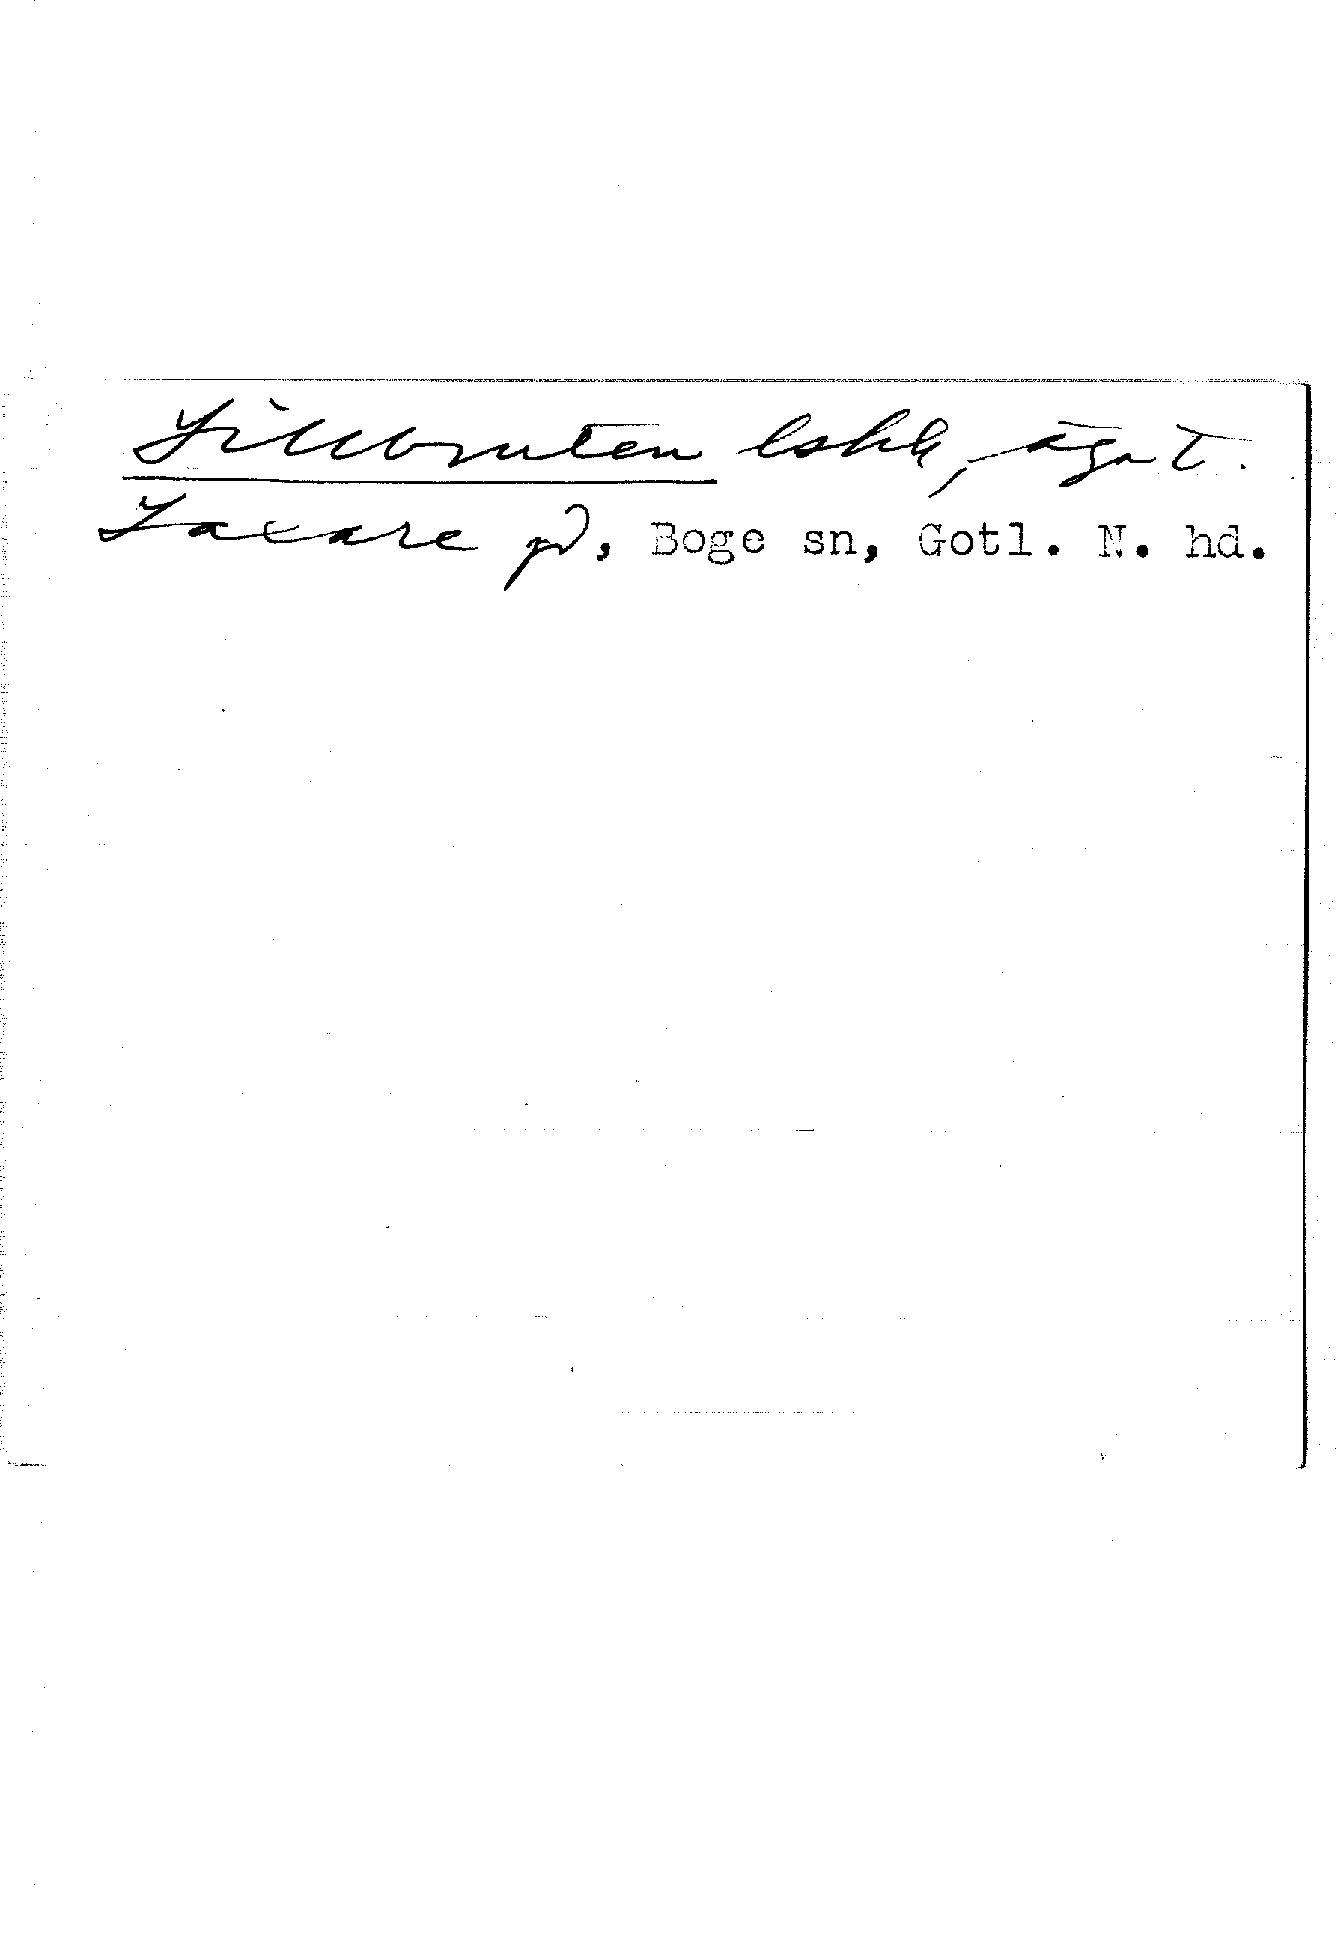 Lillbruten lskh, ägot.
Laxare pd, Boge sn, Gotl. N. hd.